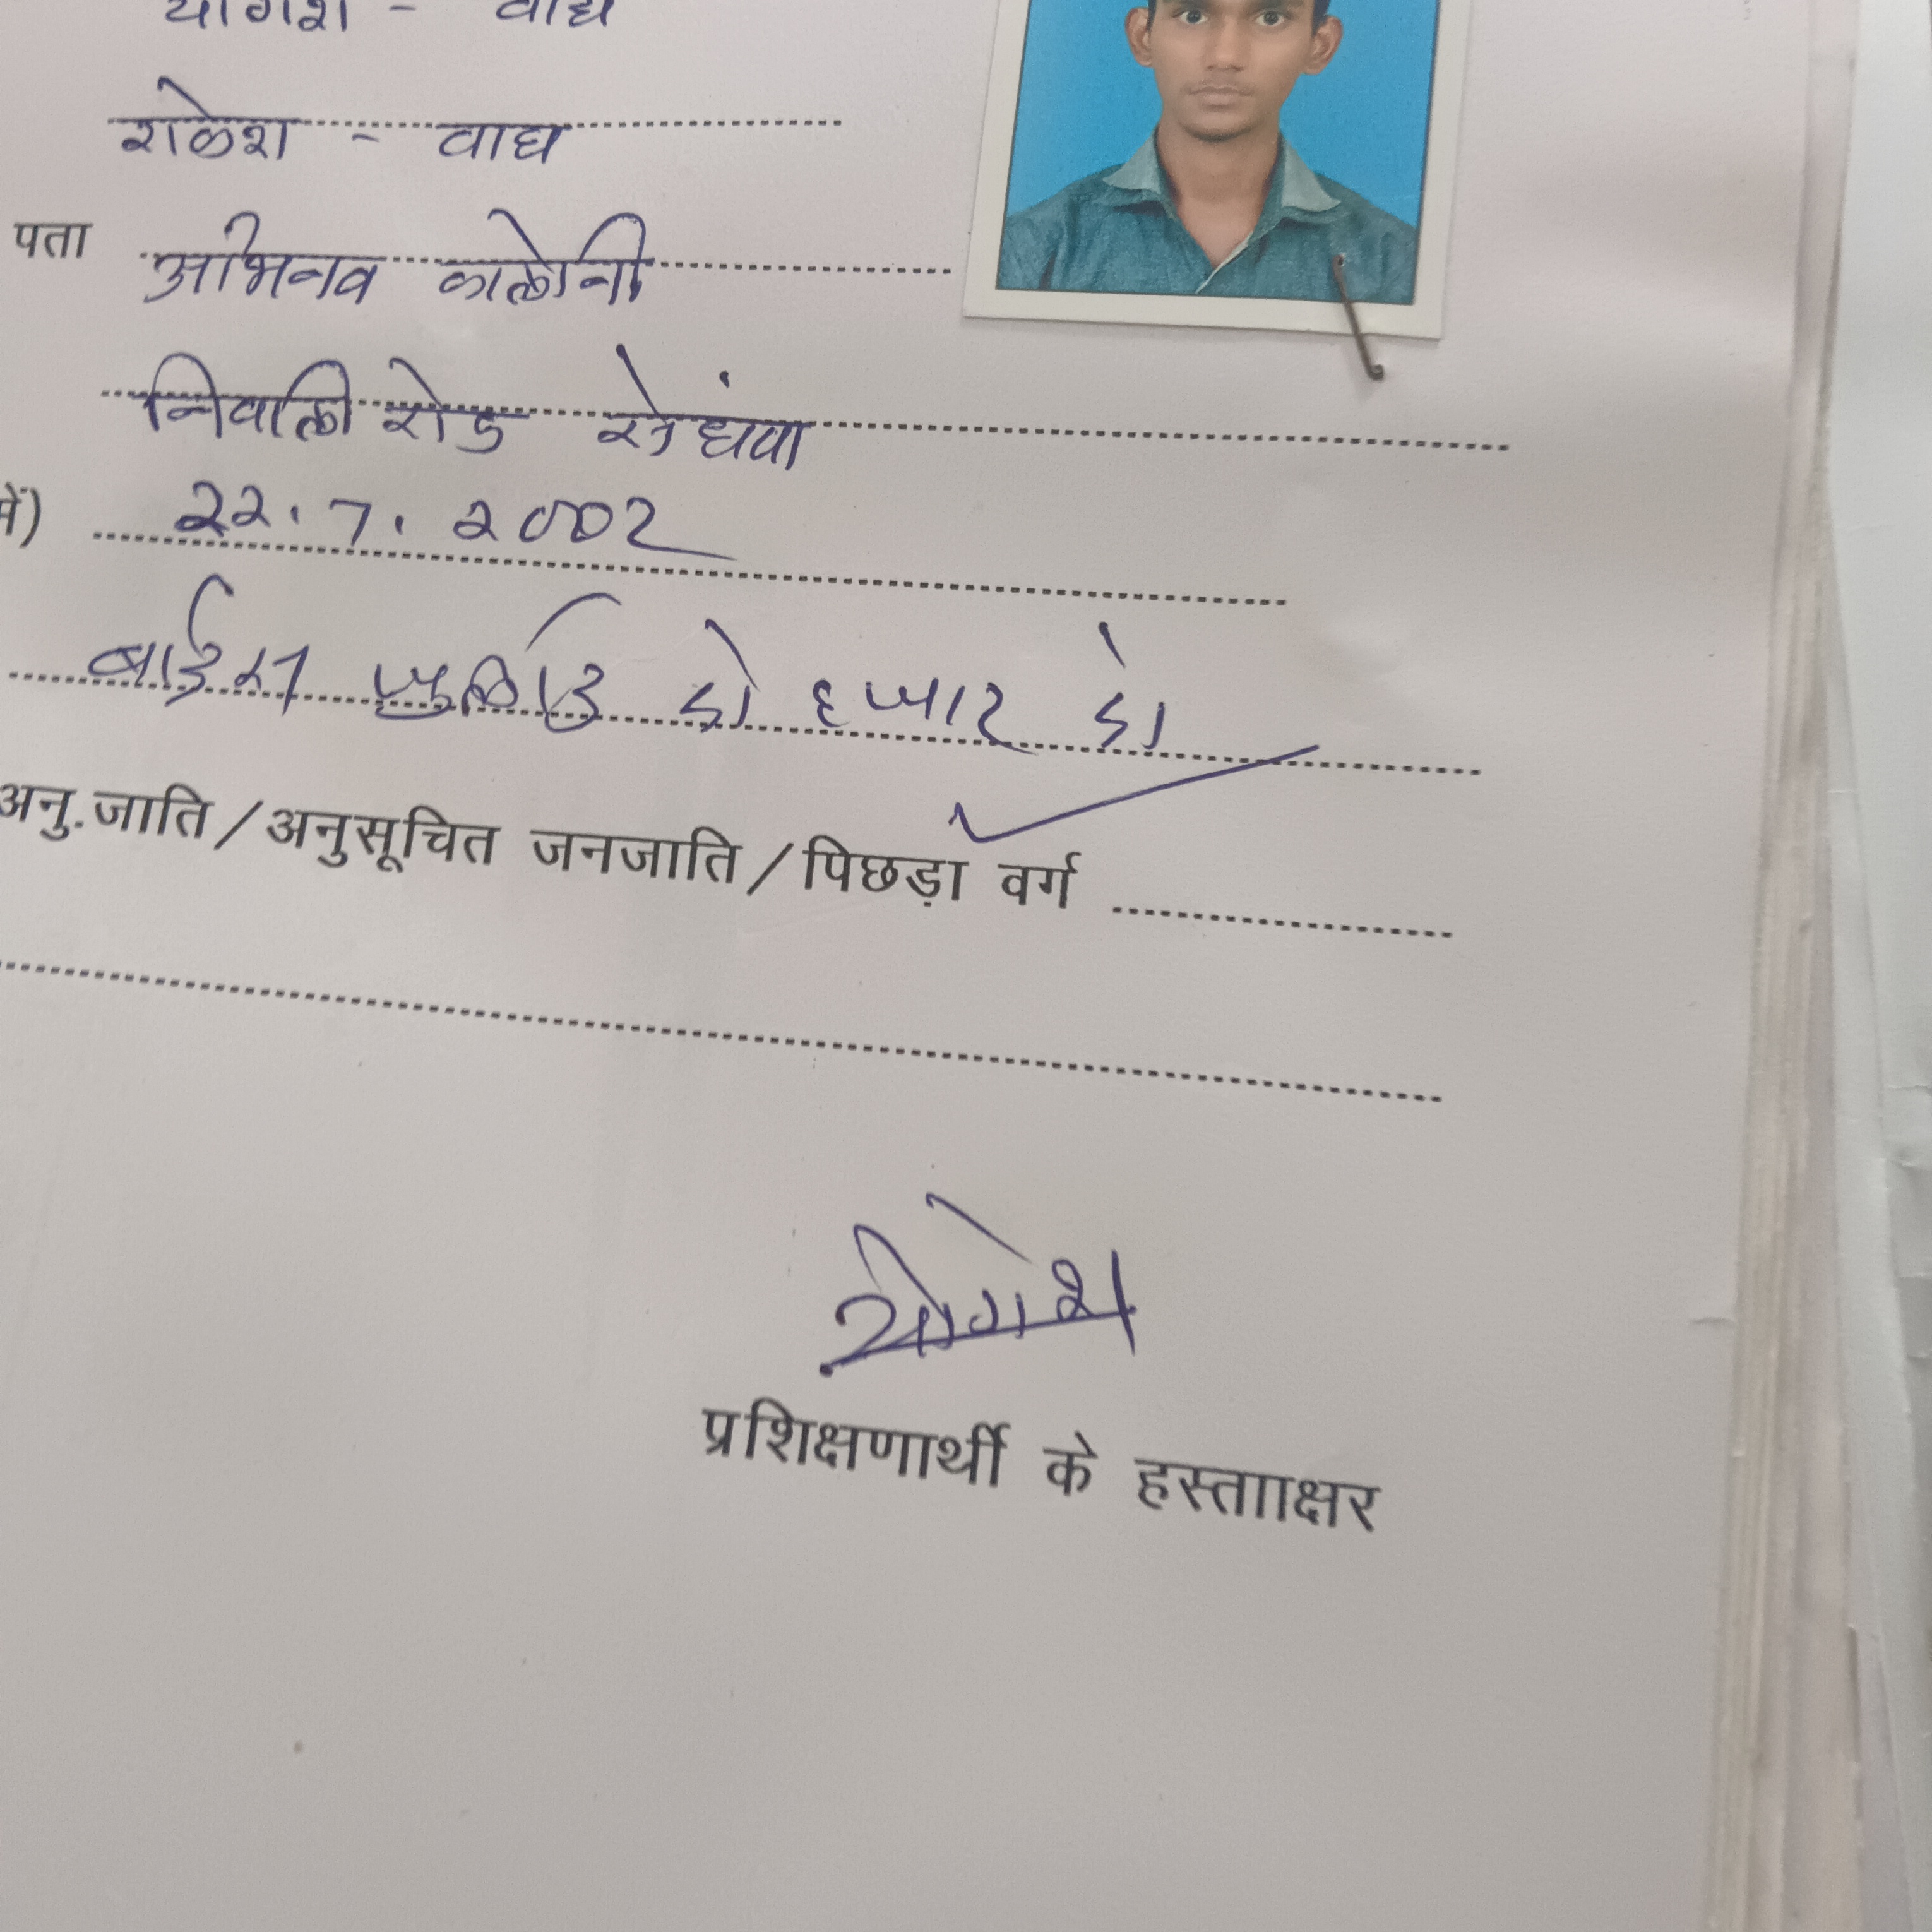 योगेश - वाघ
राकेश - वाघ
पता अभिनव कालोनी
निवाली रोड सेंधवा
में) 22.7.2002
बाईस जुलाई दो हजार दो
अनु.जाति/अनुसूचित जनजाति/पिछड़ा वर्ग
योगेश
प्रशिक्षणार्थी के हस्तााक्षर